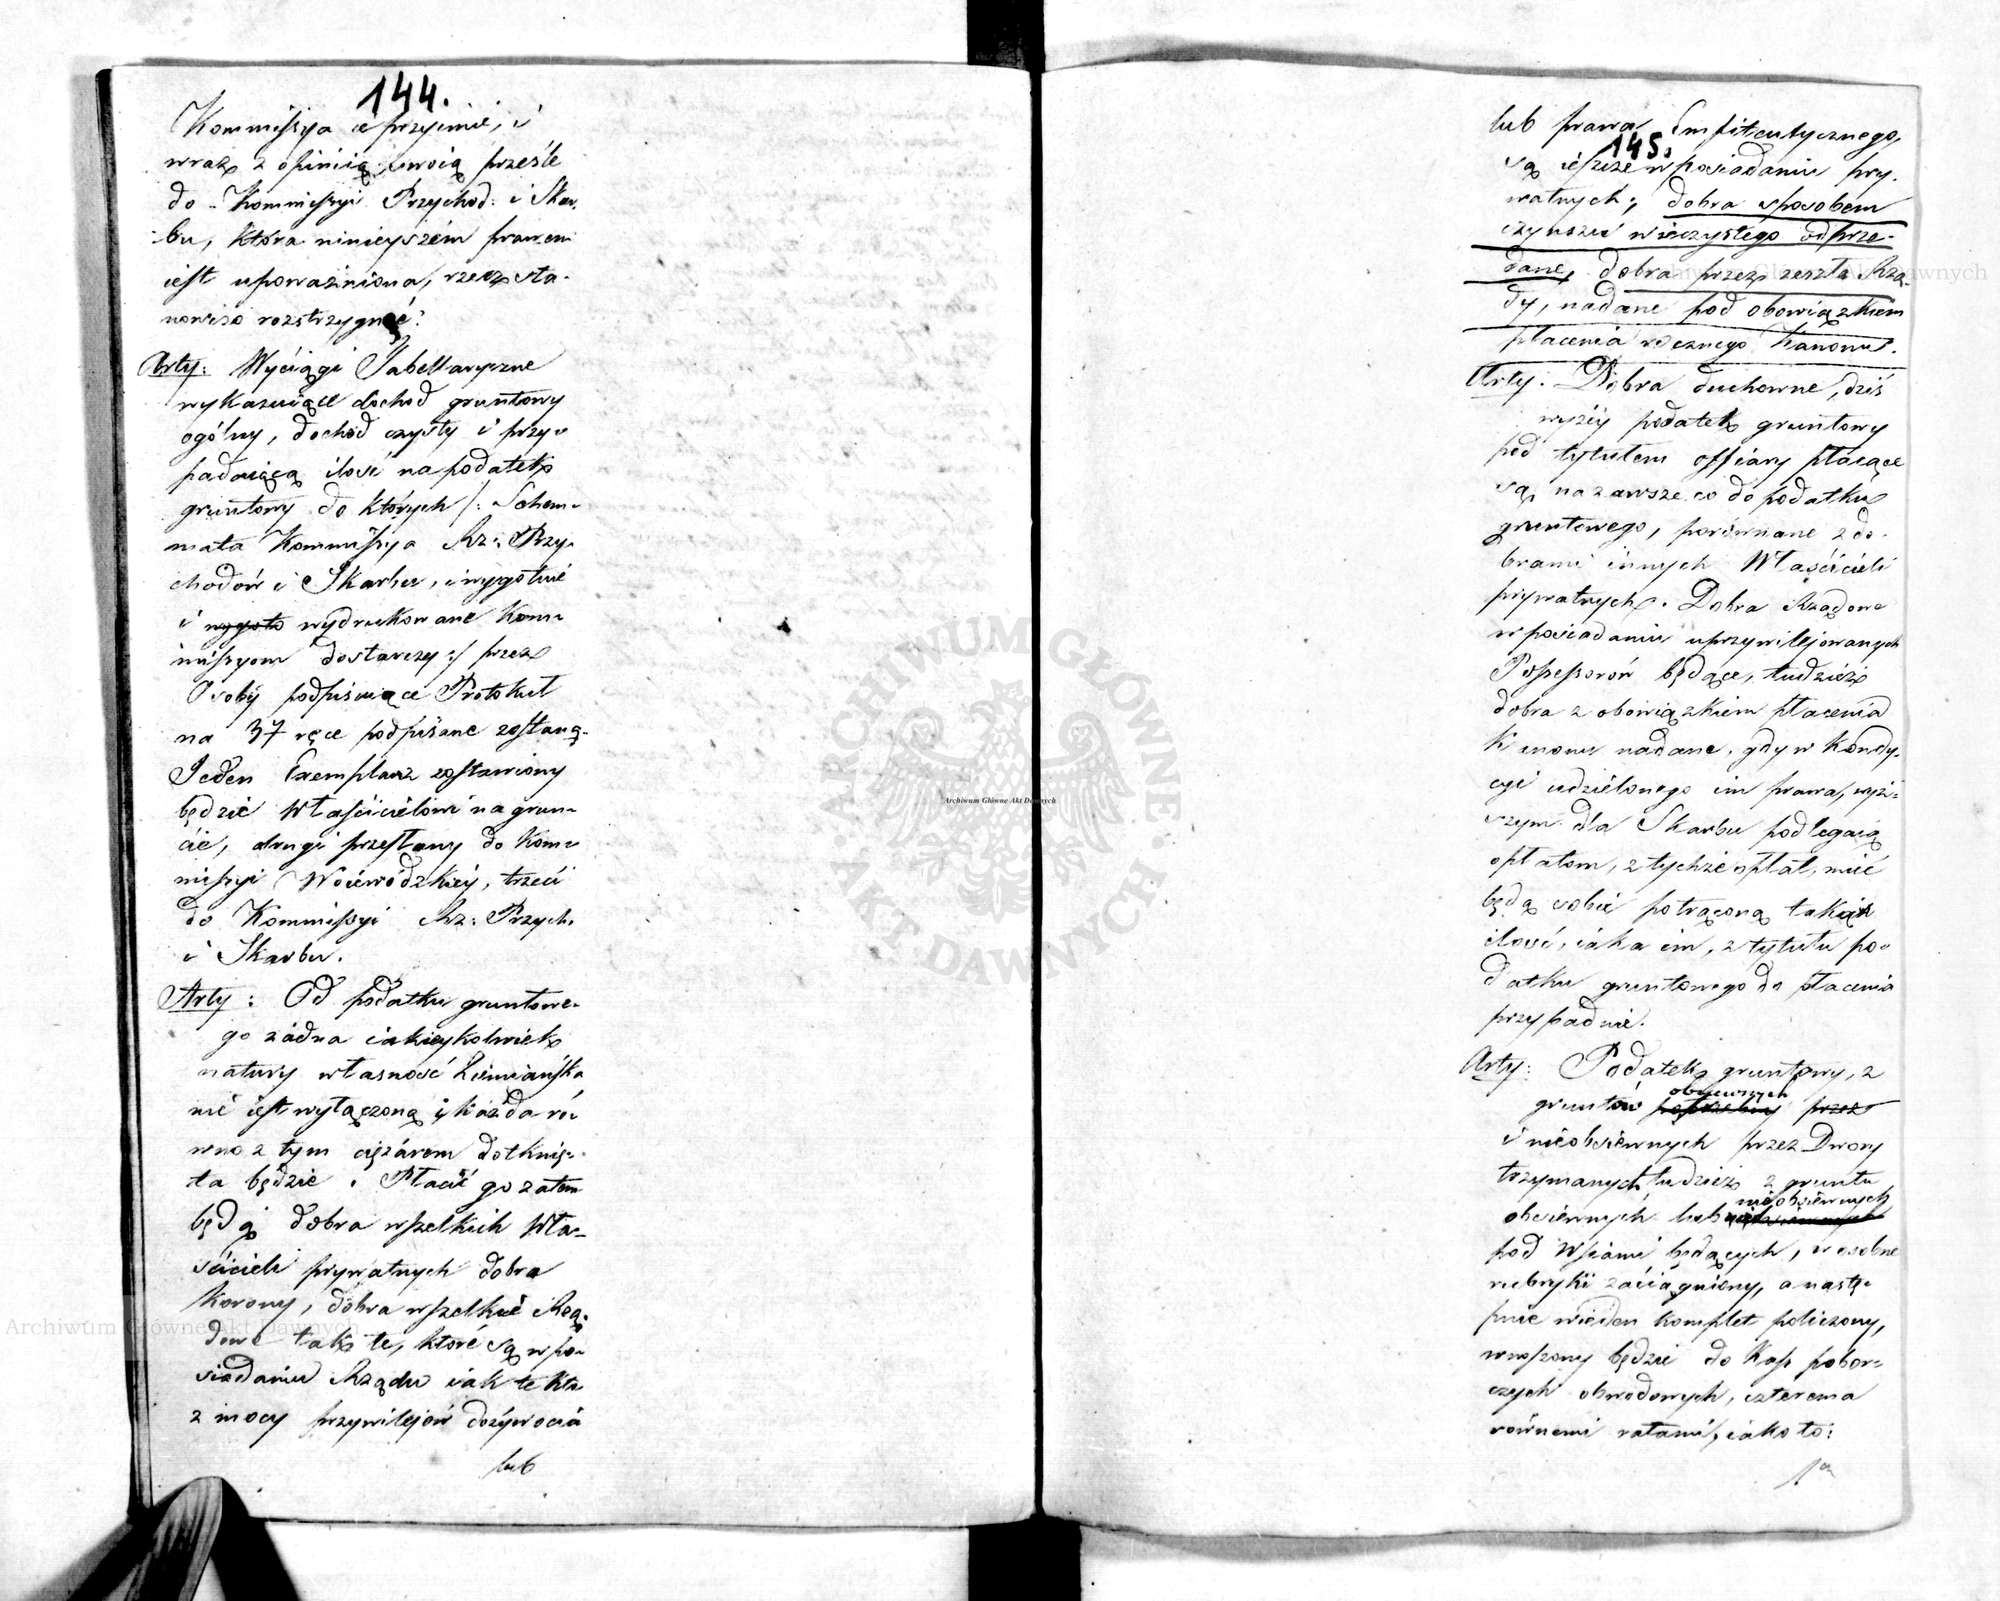 144.
Kommissya ie przyimie, i
wraz z opinią swoią prześle
do Kommissyi Przychod: i Skar-
bu, która ninieyszém prawem
iest upoważniona, rzecz sta-
nowiso rozstrzygnąć.
Arty: Wyciągi Tabellaryczne
wykazuiące dochod gruntowy
ogólny, dochod czysty i przy-
padaiącą ilość na podatek
gruntowy do których /: Schem-
mata Kommissya Rz: Przy-
chodów i Skarbu, i wygotuie
i wygoto wydrukowane Kom-
missyom dostarczy :/ przez
Osoby podpisuiące Protokuł
na 37 ręce podpisane zostaną.
Jeden Exemplarz zostawiony
będzie Właścicielowi na grun-
cie, drugi przesłany do Kom-
missyi Woiewódzkiéy, trzeci
do Kommissyi Rz: Przych:
i Skarbu.
Arty: Od podatku gruntowe-
go żadna iakieykolwiek
natury własność Ziemiańska
nie iest wyłączoną i każda ró-
wno z tym ciężarem dotknię-
ta będzie. Płacić go zatem
będą dobra wszelkich Wła-
ścicieli prywatnych dobra
Korony, dobra wszelkie Rzą-
dowe tak te, które są w po-
siadaniu Rządu iak te któ
z mocy przywilejów dożywocia
lub
lub prawa Emfiteutycznego,
145.
są ieszcze w posiadaniu pry-
watnych; dobra sposobem
czynszu wieczystego odprze-
dane, dobra przez zeszłe Rzą-
dy, nadane pod obowiązkiem
płacenia rocznego Kanonu.
Arty: Dobra duchowne, dziś
wyżéy podatek gruntowy
pod tytułem offiary płacące
są na zawsze co do podatku
gruntowego, porównane z do-
brami innych Właścicieli
prywatnych. Dobra Rządowe
w posiadaniu uprzywilejowanych
Possessorów będące, tudzież
dobra z obowiązkiem płacenia
Kanonu nadane, gdy w kondy-
cyi udzielonego im prawa, wyż-
szym dla Skarbu podlegaią
opłatom, z tychże opłat, mieć
będą sobie potrąconą taką
ilość, iaka im, z tytułu po-
datku gruntowego do płacenia
przypadnie.
Arty: Podatek gruntowy, z
obsiewnych
gruntów przez
i nieobsiewnych przez Dwory
trzymanych tudzież z gruntu
nieobsiewnych
obsiewnych lub nieobsiewnych
pod Wsiami będących, w osobne
rubryki zaciągniony, a nastę-
pnie wieden komplet policzony,
wnoszony będzie do Kass pobor-
czych obwodowych, czterema
równemi ratami, iako to:
1a